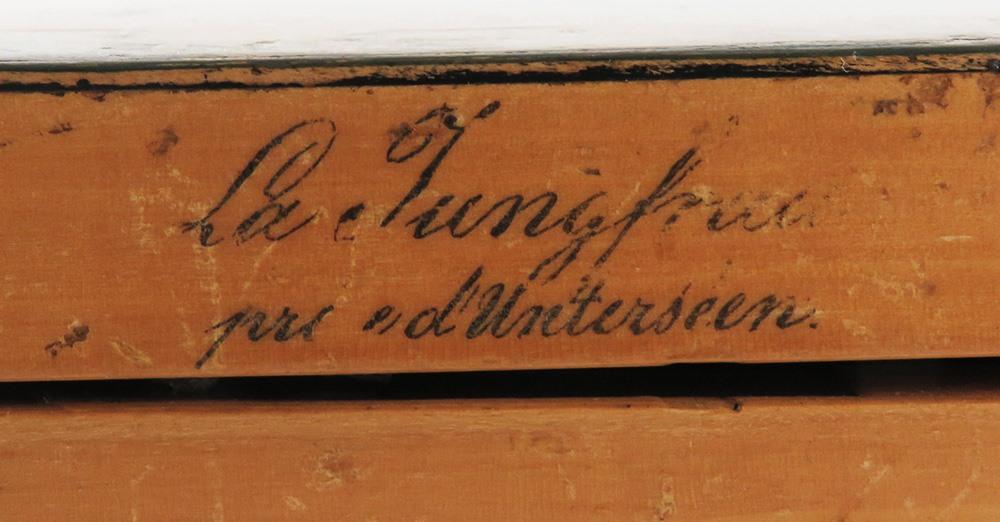 La Jungfrau
prise d'Unterseen.